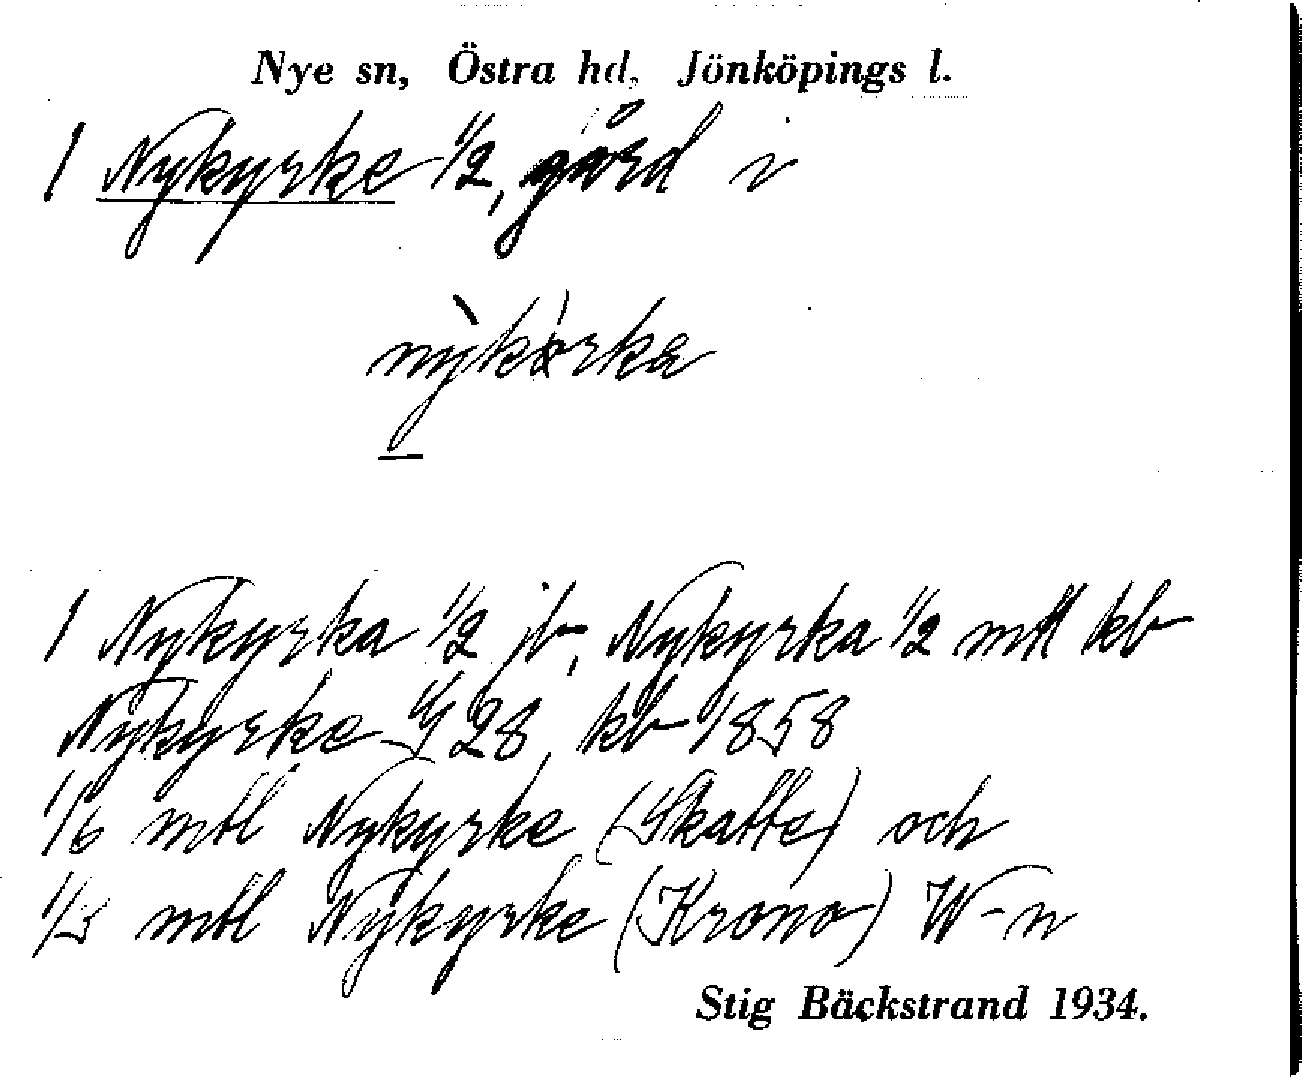 Nye sn, Östra hd, Jönköpings l.
1 Nykyrke 1/2, gård i
nỳkørka
1 Nykyrka 1/2 jb, Nykyrka 1/2 mtl kb
Nykyrke 28, kb 1858
1/6 mtl Nykyrke (Skatte) och
1/3 mtl Nykyrke (Krono) W-n
Stig Bäckstrand 1934.